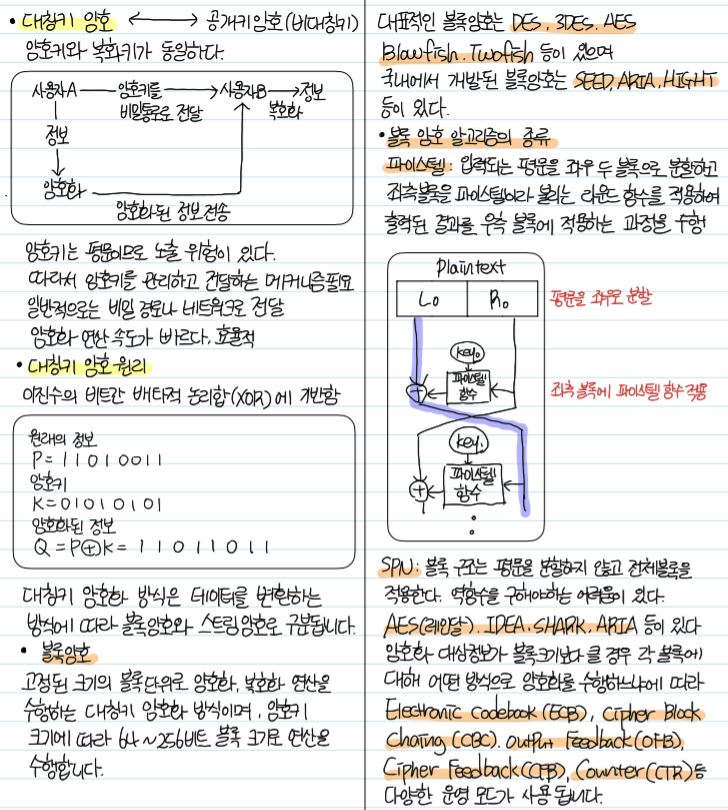 • 대칭키 암호 ⟷ 공개키암호(비대칭키)
암호키와 복호키가 동일하다.
사용자A — 암호키를 → 사용자B → 정보
비밀통로로 전달 복호화
정보
암호화
암호화된 정보 전송
암호키는 평문이므로 노출 위험이 있다.
따라서 암호키를 관리하고 전달하는 메커니즘필요
일반적으로는 비밀 경로나 네트워크로 전달
암호화 연산 속도가 빠르다. 효율적
• 대칭키 암호 원리
이진수의 비트간 배타적 논리합(XOR)에 기반함
원래의 정보
P = 1 1 0 1 0 0 1 1
암호키
K = 0 1 0 1 0 1 0 1
암호화된 정보
Q = P⊕K = 1 1 0 1 1 0 1 1
대칭키 암호화 방식은 데이터를 변환하는
방식에 따라 블록암호와 스트림암호로 구분됩니다.
• 블록암호
고정된 크기의 블록단위로 암호화, 복호화 연산을
수행하는 대칭키 암호화 방식이며, 암호키
크기에 따라 64 ~ 256비트 블록 크기로 연산을
수행합니다.
대표적인 블록암호는 DES, 3DES, AES
Blowfish, Twofish 등이 있으며
국내에서 개발된 블록암호는 SEED, ARIA, HIGHT
등이 있다.
• 블록 암호 알고리즘의 종류
파이스텔 : 입력되는 평문을 좌우 두 블록으로 분할하고
좌측블록을 파이스텔이라 불리는 라운드 함수를 적용하여
출력된 결과를 우측 블록에 적용하는 과정을 수행
Plaintext
L₀ R₀
평문을 좌우로 분할
key₀
파이스텔
함수
좌측 블록에 파이스텔 함수 적용
key₁
파이스텔
함수
SPN : 블록 구조는 평문을 분할하지 않고 전체블록을
적용한다. 역함수를 구해야하는 어려움이 있다.
AES(레인달), IDEA, SHARK, ARIA 등이 있다
암호화 대상정보가 블록크기보다 클 경우 각 블록에
대해 어떤 방식으로 암호화를 수행하느냐에 따라
Electronic Codebook(ECB), Cipher Block
Chaing (CBC), Output Feedback(OFB),
Cipher Feedback(CFB), Counter(CTR)등
다양한 운영 모드가 사용 됩니다.